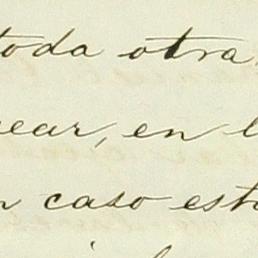 toda otra
ear, en l
n caso est